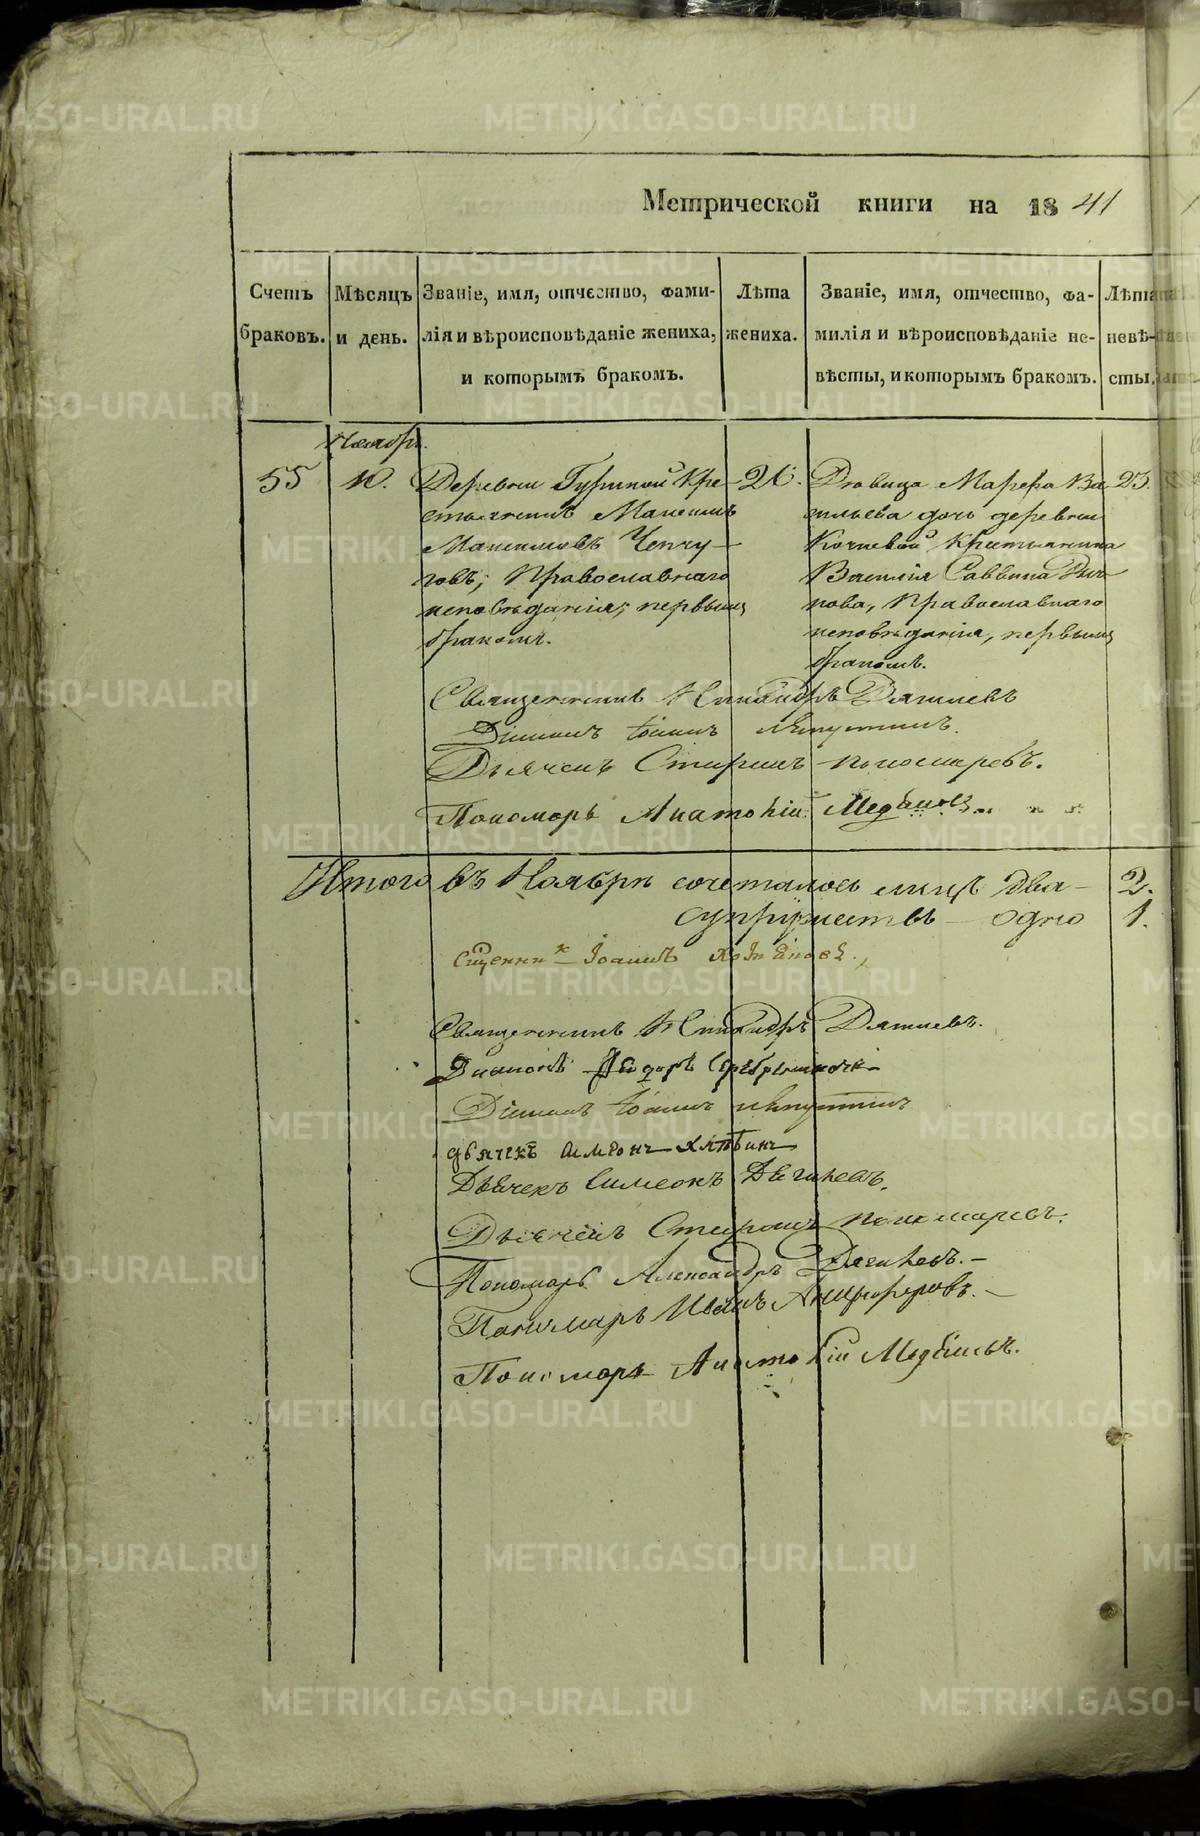 Метрической книги на 1841
Счетъ браковъ.
Мѣсяцъ и день.
Званіе, имя, отчество, фами-
лія и вѣроисповѣданіе жениха,
и которымъ бракомъ.
Лѣта жениха.
Званіе, имя, отчество, фа-
милія и вѣроисповѣданіе не-
вѣсты, и которымъ бракомъ.
Лѣта невѣ-
сты.
Ноябрь.
55
10.
Деревни Гуриной Кре-
стьянинъ Максимъ
Максимовъ Чепчу-
говъ, Православнаго
исповѣданія, первымъ
бракомъ.
21.
Дѣвица Марѳа Ва-
сильева дочь деревни
Кочневой Крестьянина
Василія Саввина
Православнаго
исповѣданія, первымъ
бракомъ.
23.
Священникъ Никандръ
Діаконъ Іоаннъ
Дьячекъ Пономаревъ.
Пономарь
Итого въ Ноябрѣ сочеталось лицъ два – 2.
супружествъ – одно 1.
Сщенникъ Іоаннъ
Священникъ Никандръ
Діаконъ Ѳеодоръ
Діаконъ Іоаннъ
дьячекъ Симеонъ Хлѣбинъ
Дьячекъ Симеонъ Дягилевъ.
Дьячекъ Пономаревъ.
Пономарь Александръ Дягилевъ. –
Пономарь Иванъ Анциферовъ. –
Пономарь
METRIKI.GASO-URAL.RU